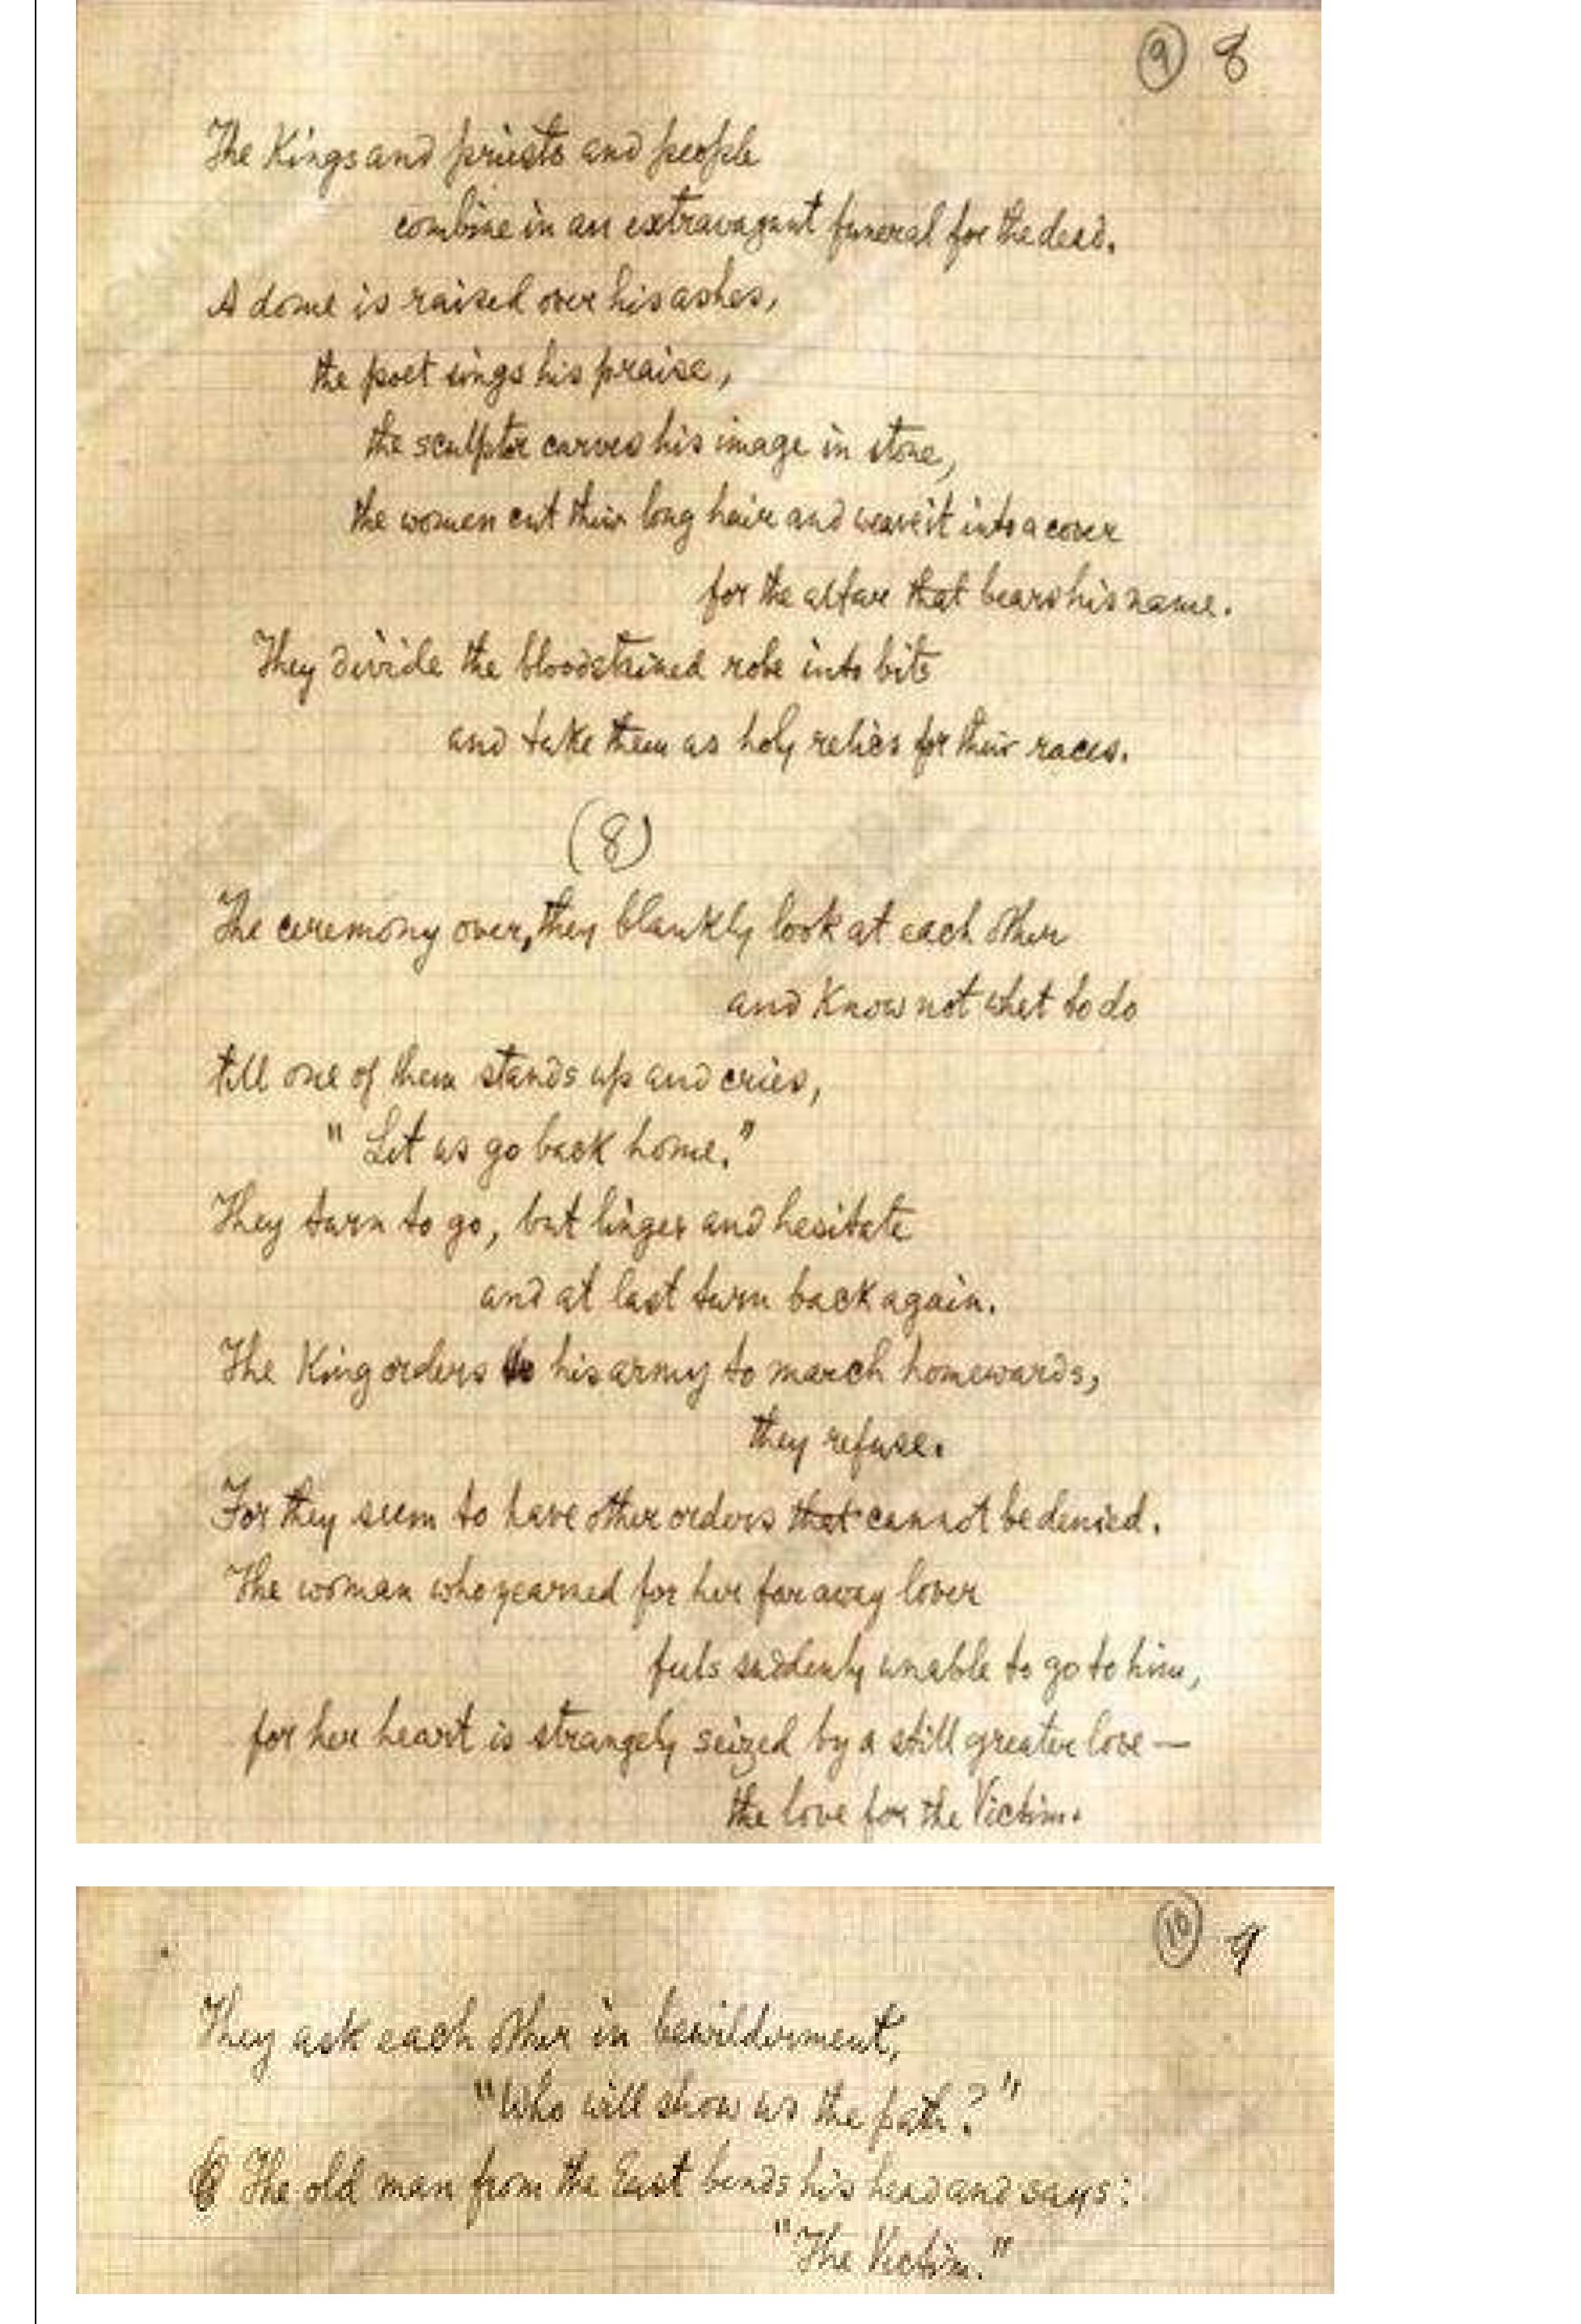 (9) 8
The Kings and priests and people
combine in an extravagant funeral for the dead.
A dome is raised over his ashes,
the poet sings his praise,
the sculptor carves his image in stone,
the women cut their long hair and weave it into a cover
for the altare that bears his name.
They divide the bloodstained robe into bits
and take them as holy relics for their races.
(8)
The ceremony over, they blankly look at each other
and know not what to do
till one of them stands up and cries,
" Let us go back home."
They turn to go, but linger and hesitate
and at last turn back again.
The King orders to his army to march homewards,
they refuse.
For they seem to have other orders that cannot be denied.
The woman who yearned for her far away lover
feels suddenly unable to go to him,
for her heart is strangely seized by a still greater love —
the love for the Victim.
(10) 9
They ask each other in bewilderment,
"Who will show us the path?"
The old man from the East bends his head and says:
"The Victim."